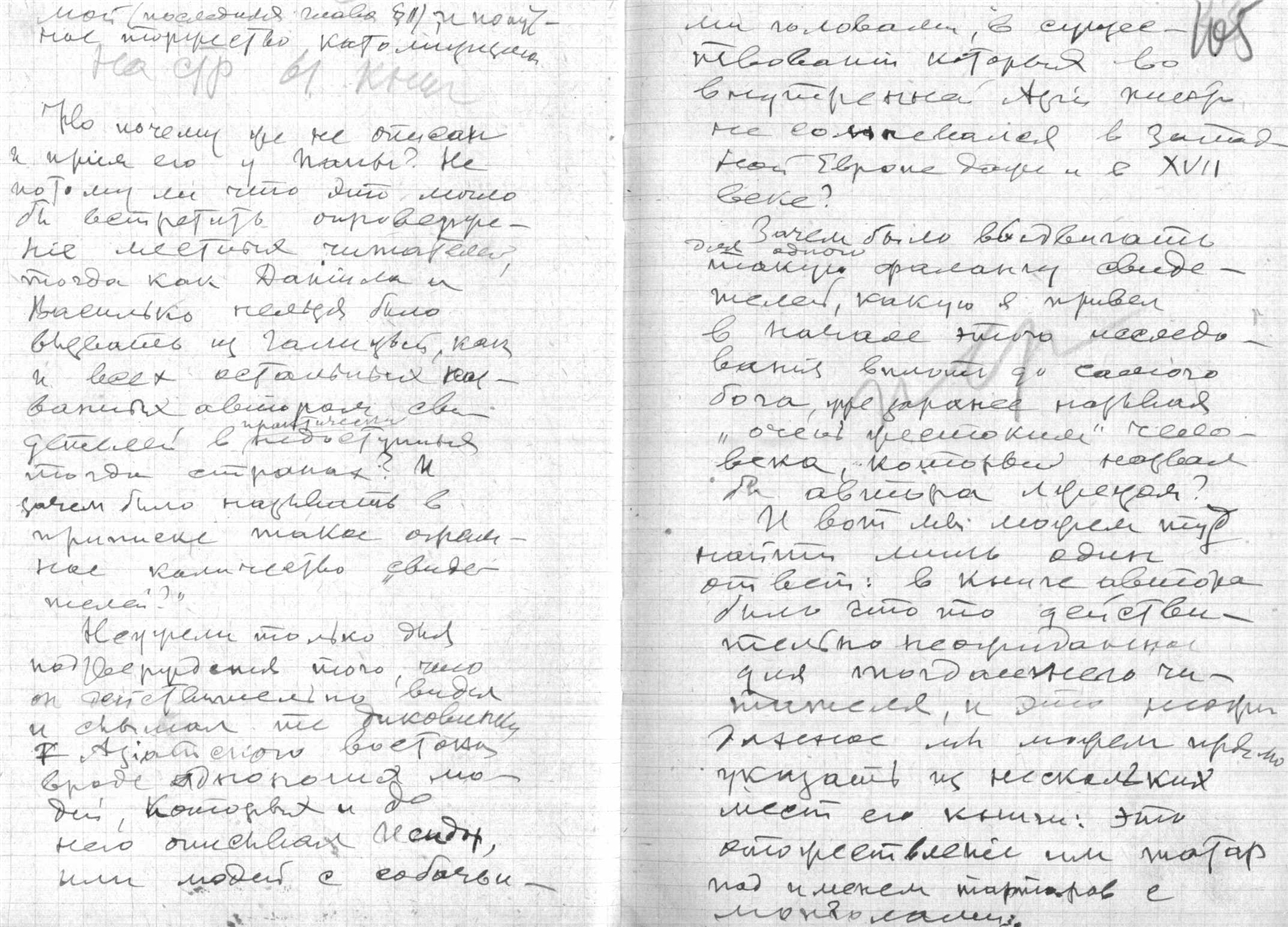 мой (последняя глава § II) за полу-
ное торжество католицизма
на стр 61 книг
Но почему же не описан
и приём его у Папы? Не
потому ли что это могло
бы встретить опроверже-
ніе местных читателей,
тогда как Даніила и
Василько нельзя было
вызвать из Галицкой, как
и всех остальных наз-
ванных автором, сви
детелей в практически недоступных
тогда странах? И
зачем было называть в
приписке такое огром-
ное количество „свиде
телей?"
Неужели только для
подтверждения того, что
он действительно видел
и слышал те диковинки
Азіатского востока
вроде одноногих лю-
дей, которых и до
него описывал Исидор,
или людей с собачьи-
105
ми головами, в сущес-
твовании которых во
внутренней Азіи никто
не сомневался в Запад-
ной Европе даже и в XVII
веке?
Зачем было выдвигать
для одного
такую фалангу свиде-
телей, какую я привел
в начале этого исследо-
вания вплоть до самого
бога, уже заранее называя
„очень жестоким" чело-
века, который назвал
бы автора лжецом?
И вот мы можем тут
найти лишь один
ответ: в книге автора
было что то действи-
тельно неожиданное
для тогдашнего чи-
тателя, и это неожи
данное мы можем прямо
указать из нескольких
мест его книги: это
отожествленіе им татар
под именем тартаров с
монголами: